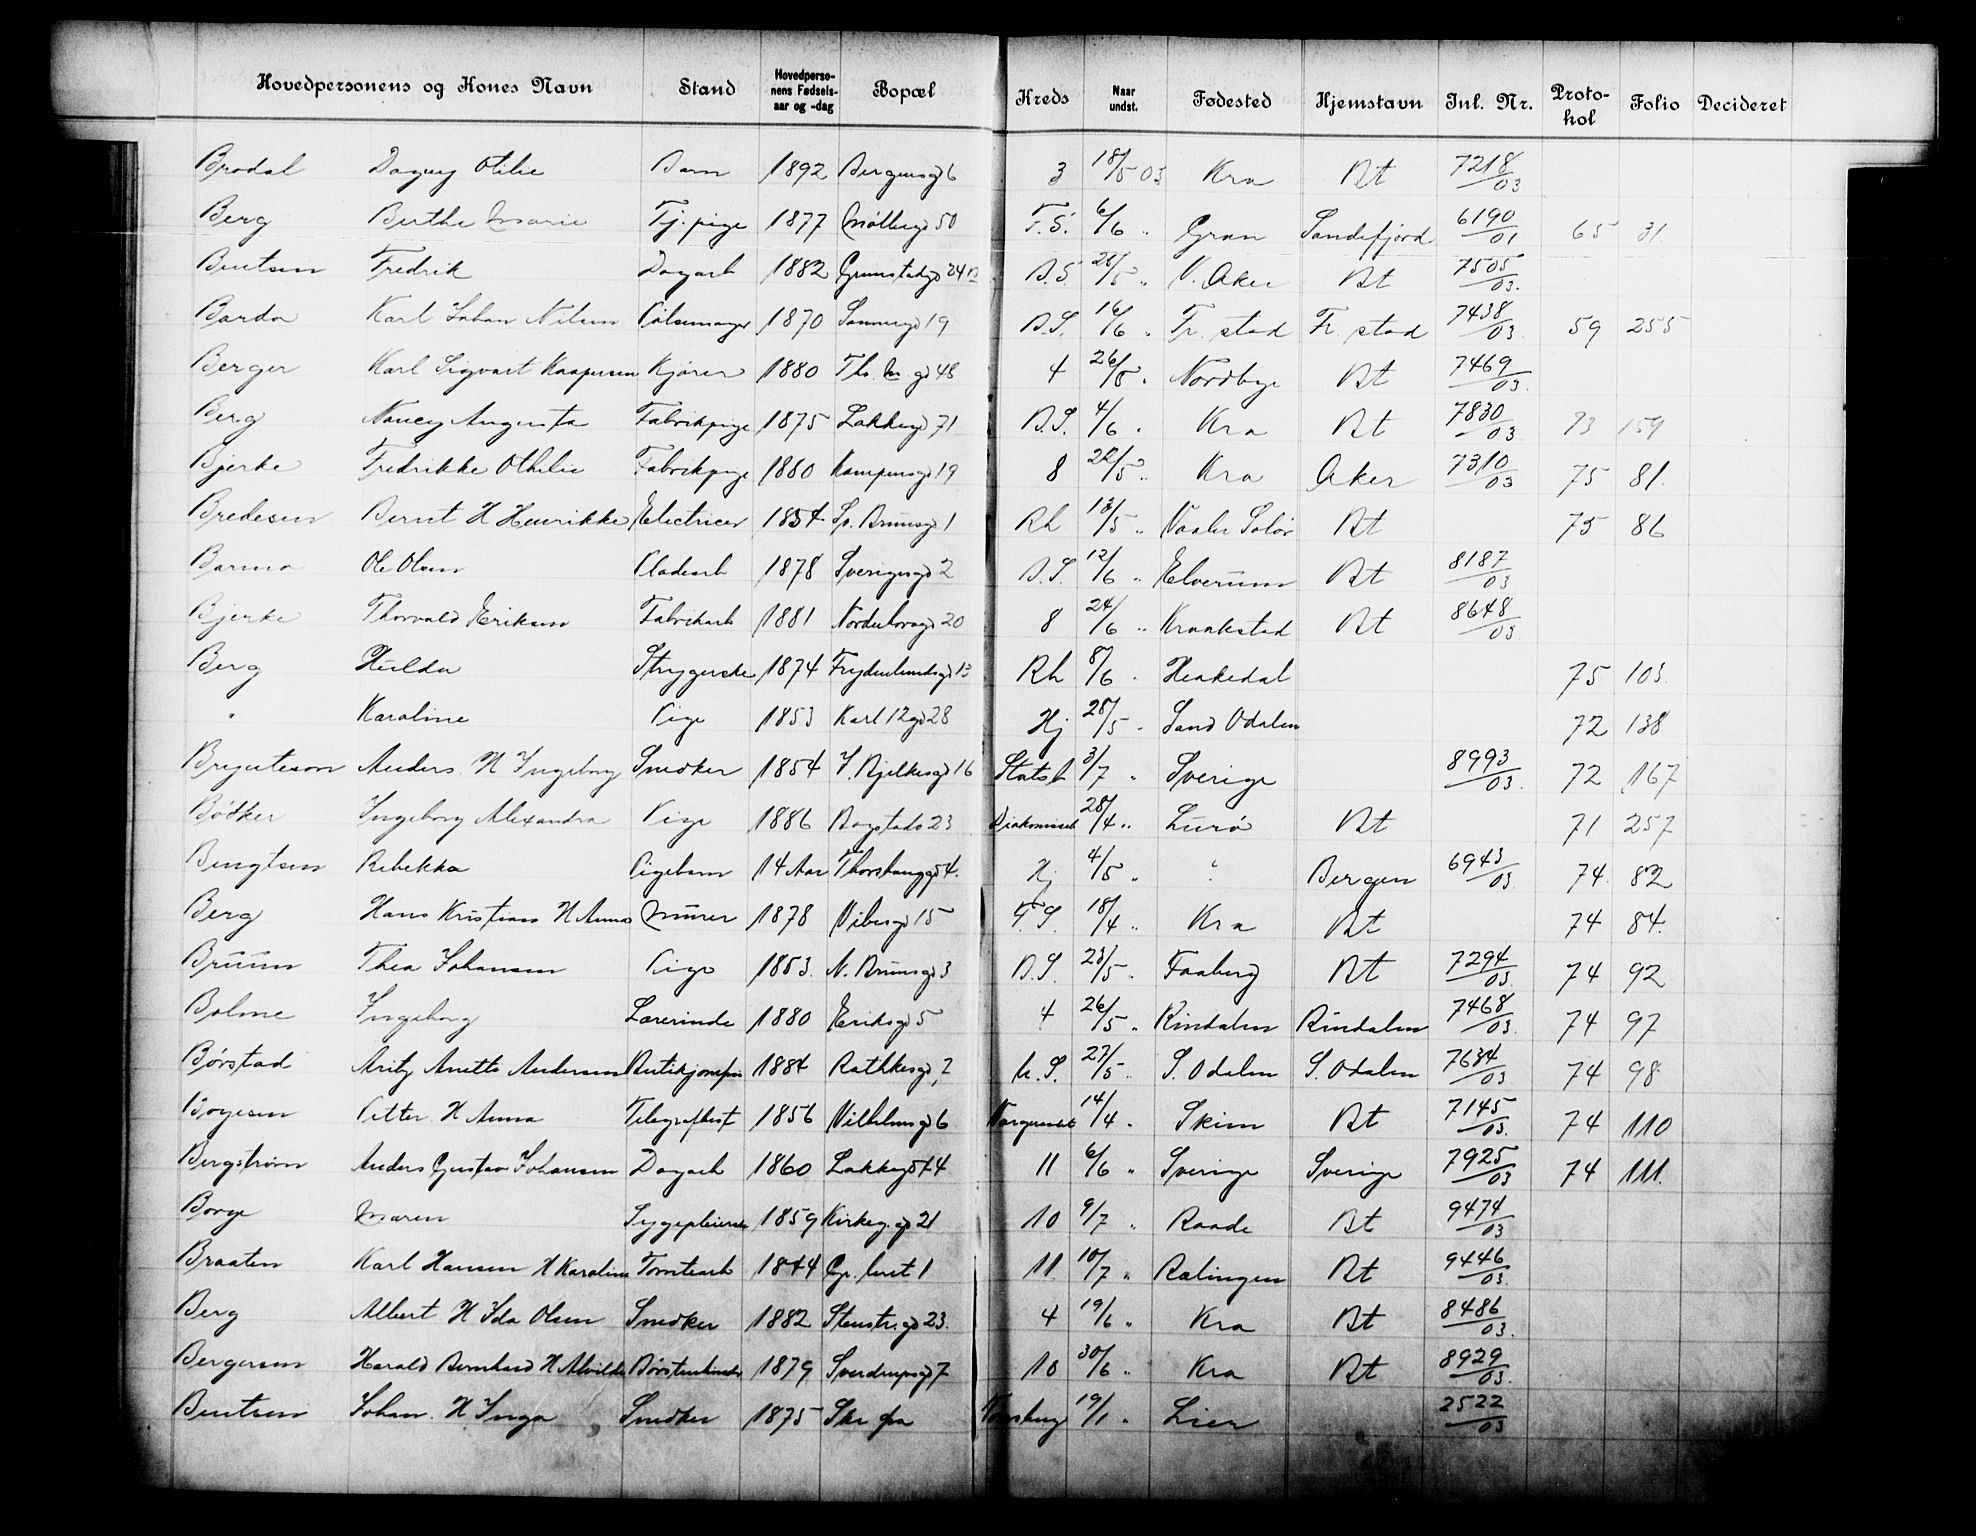 Hovedpersonens og Kones Navn Stand Hovedperso-nens Fødsels-aar og -dag Bopæl Kreds Naar undst. Fødested Hjemstavn Inl. Nr. Proto-kol Folio Decideret
Brodal Dagny Otilie Barn 1892 Bergensgd 6 3 18/5 03 Kra Bt 7218/03
Berg Berthe Marie Tj. pige 1877 Møllergd 50 F.S. 6/6 " Gran Sandefjord 6190/01 65 31
Bentsen Fredrik Dagarb 1882 Grimstadgd 24 B.S. 28/5 " V. Aker Bt 7505/03
Karl Johan Nilsen Pølsemager 1870 Sannergd 19 B.S. 16/6 " Fr. stad Fr. stad 7438/03 59 255
Berger Karl Sigvart Kaspersen Kjører 1880 Th. M. gd 48 4 26/5 " Nordbye Bt 7469/03
Berg Nancy Augusta Fabrikpige 1875 Lakkegd 71 B.S. 4/6 " Kra Bt 7830/03 73 159
Bjerke Fredrikke Othilie Fabrikpige 1880 Kampensgd 19 8 22/5 " Kra Aker 7310/03 75 81
Bredesen Bernt H Henrikke Electricer 1854 Sp. Brunsgd 1 Rh 13/5 " Vaaler Solør Bt 75 86
Ole Olsen Pladearb 1878 Sverigesgd 2 B.S. 12/6 " Elverum Bt 8187/03
Bjerke Thorvald Eriksen Fabrikarb 1881 Norderhovsgd 20 8 24/6 " Kraakstad Bt 8648/03
Berg Hulda Strygerske 1874 Frydenlundsgd 13 Rh 8/6 " Heakedal 75 103
" Karoline Pige 1853 Karl 12 gd 28 Hj 28/5 " Sand Odalen 72 138
Brynteson Anders H Ingeborg Snedker 1854 J. Bjelkesgd 16 Statsb 3/7 " Sverige 8993/03 72 167
Bødker Ingeborg Alexandra Pige 1886 Bogstads 23 Diakonisseh 28/4 " Lurø Bt 71 257
Bengtsen Rebekka Pigebarn 14 Aar Thorshauggd 4 Hj 4/5 " " Bergen 6943/03 74 82
Berg Hans Kristian H Anna Murer 1878 Vibesgd 15 F.S. 18/4 " Kra Bt 74 84
Bruun Thea Johansen Pige 1853 N. Brunsgd 3 B.S. 23/5 " Faaberg Bt 7294/03 74 92
Bolme Ingeborg Lærerinde 1880 Eriksgd 5 4 26/5 " Rindalen Rindalen 7468/03 74 97
Børstad Anette Andersen 1884 Rathkesgd 7 U.S. 27/5 " S. Odalen S. Odalen 7634/03 74 98
Boyesen Petter H Anna Telegrafbest 1856 Vilhelmsgd 6 14/4 " Skien Bt 7145/03 74 110
Bergstrøm Anders Gustav Johansen Dagarb 1860 Lakkegd 74 11 6/6 " Sverige Sverige 7925/03 74 111
Borge Maren Sygepleierske 1859 Kirkeg. gd 21 10 9/7 " Raade Bt 9474/03
Braaten Karl Hansen H Karoline Tomtearb 1844 Gr. leret 1 11 10/7 " Rælingen Bt 9446/03
Berg Albert H Ida Olsen Snedker 1882 Stenstr. gd 23 4 19/6 " Kra Bt 8486/03
Bergersen Harald Bernhard H Alvilde Børstenbinder 1879 Sverdrupsgd 7 10 30/6 " Kra Bt 8929/03
Bentsen Johan H Inga Snedker 1875 Tønsberg 19/1 " Lier 2522/03